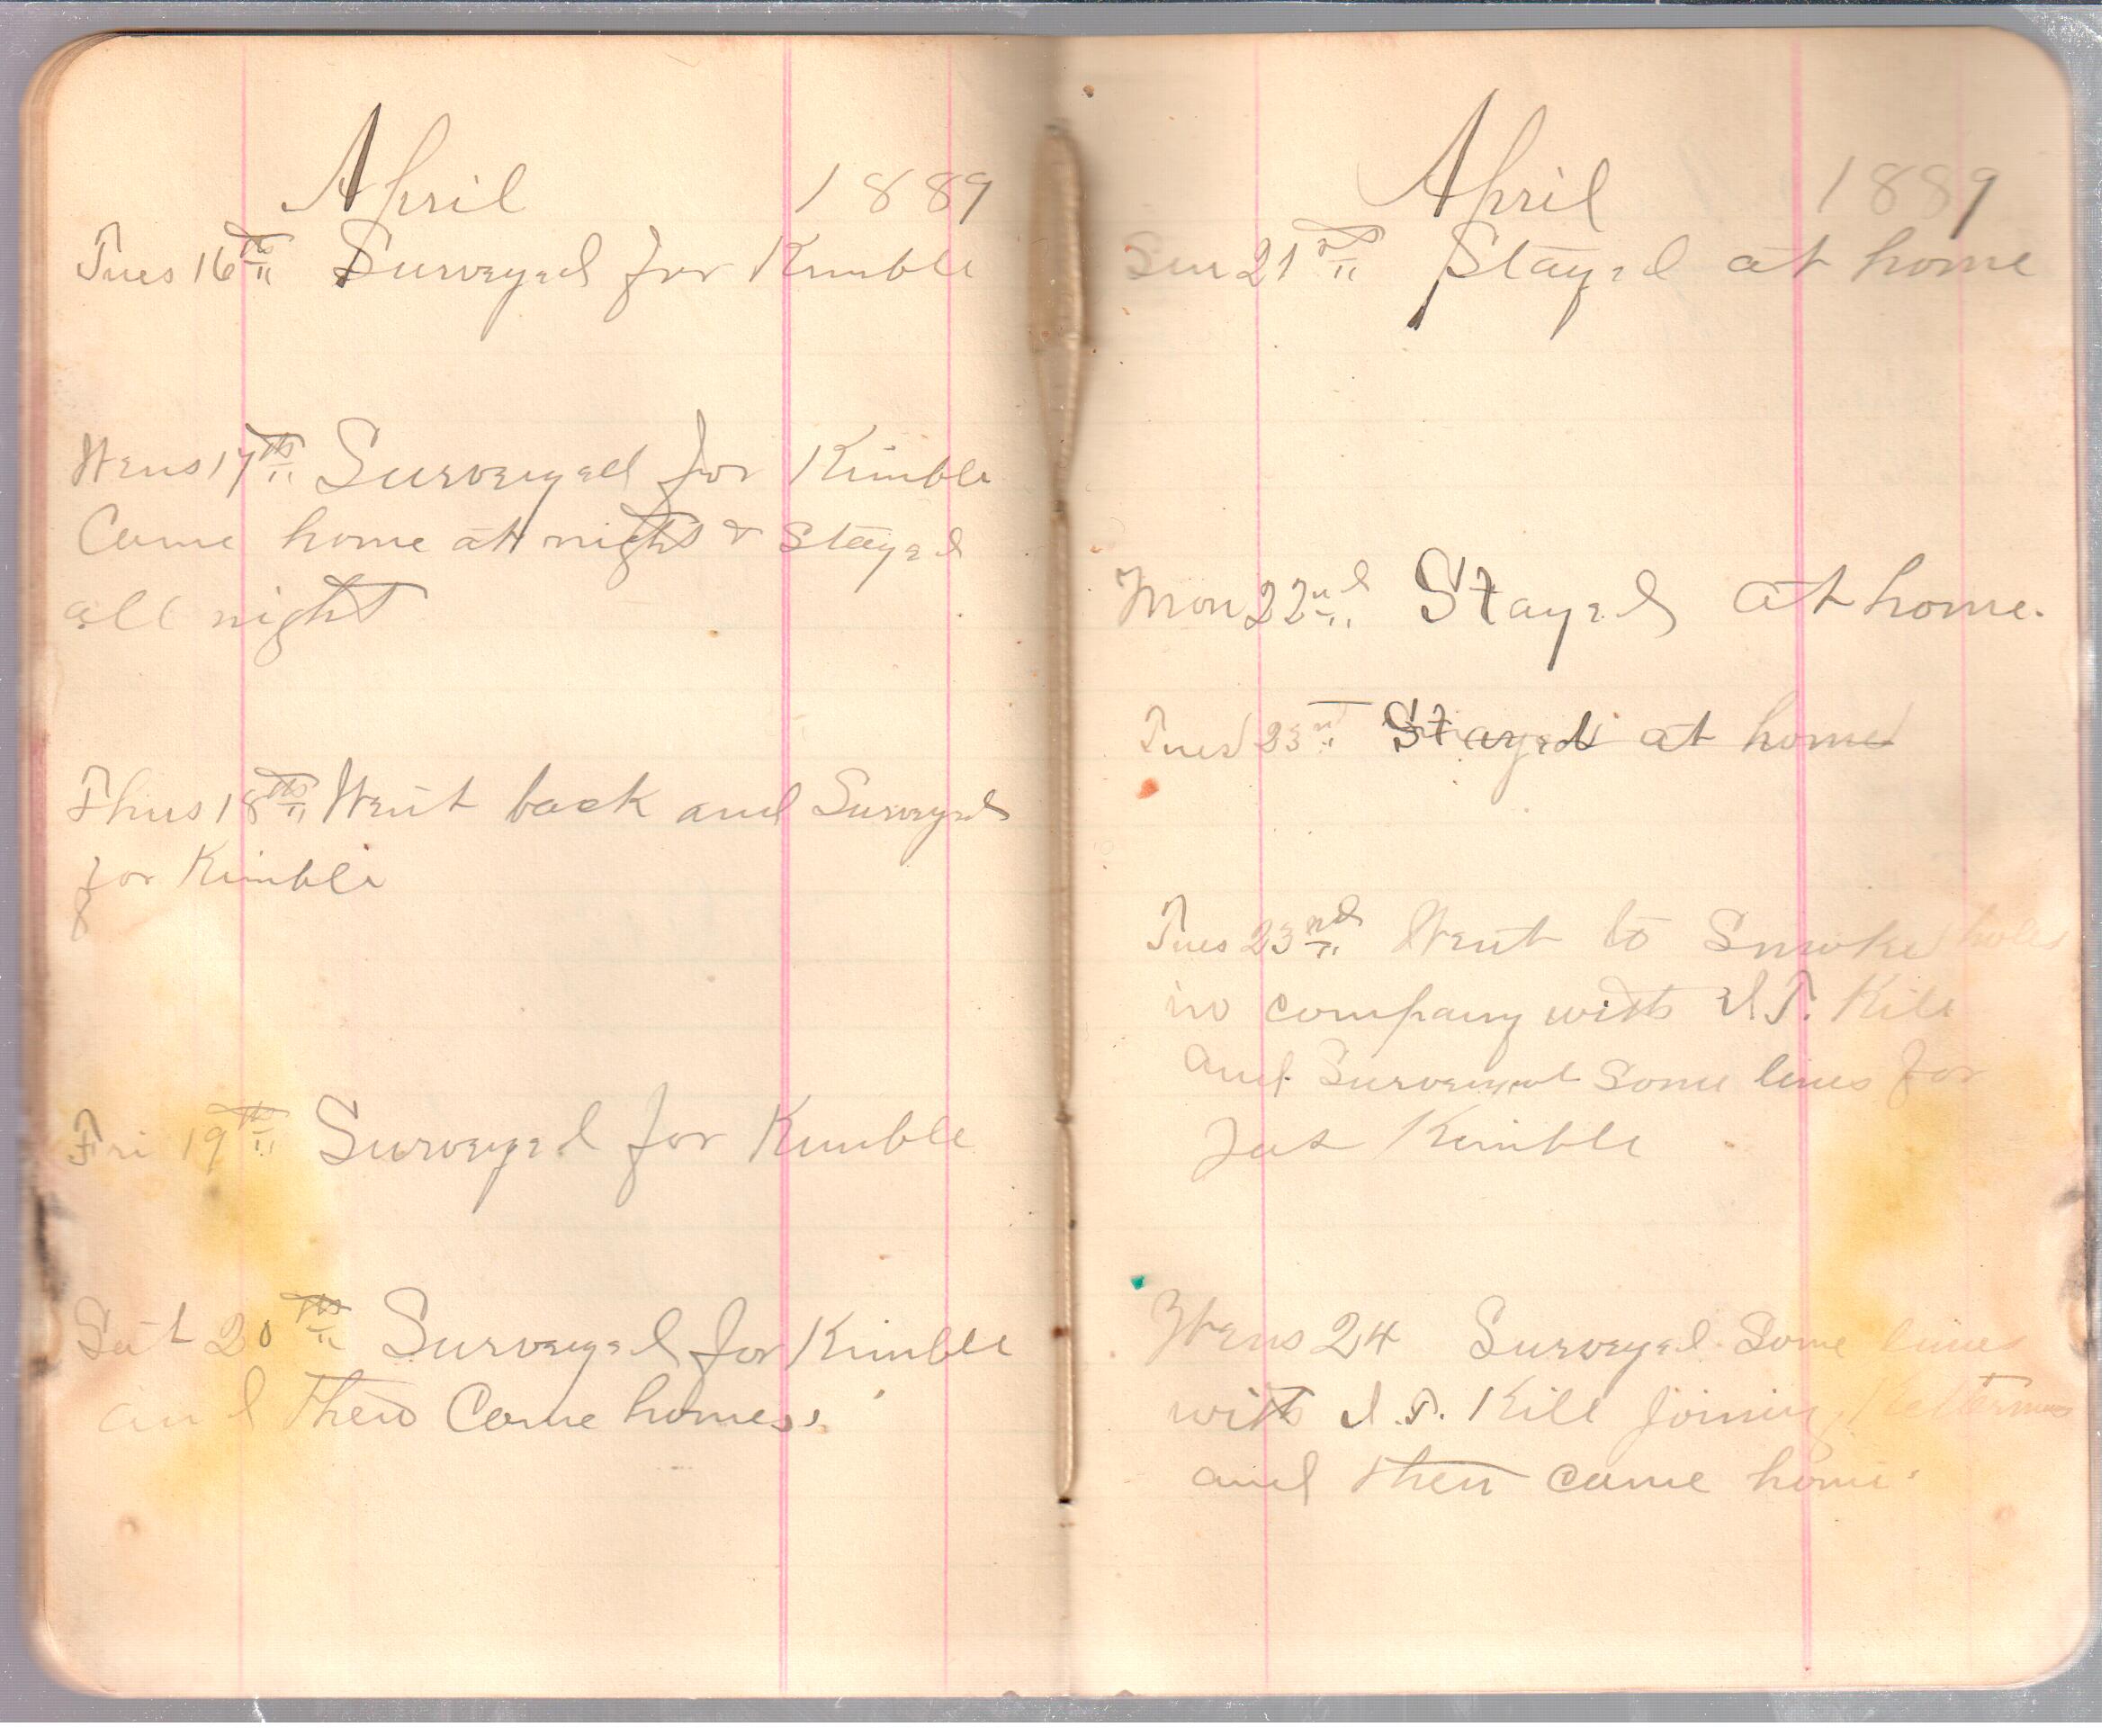 April 1889
Tues 16th Surveyed for Kimble
Wens 17th Surveyed for Kimble
Came home at night & Stayed
all night
Thurs 18th Went back and Surveyed
for Kimble
Fri 19th Surveyed for Kimble
Sat 20th Surveyed for Kimble
and then Came home
April 1889
Sun 21st Stayed at home
Mon 22nd Stayed at home.
Tues 23rd Stayed at home
Tues 23rd Went to Smoke holes
in company with I.T. Kile
and Surveyed Some lines for
Kimble
Wens 24 Surveyed Some lines
with I.T. Kile joining Ketterman
and then came home.